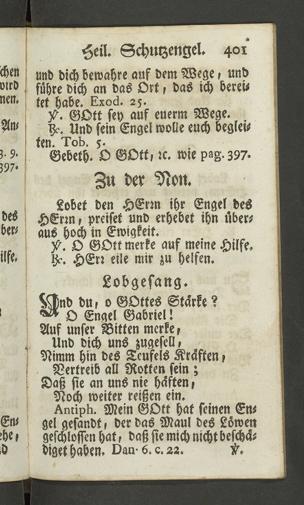 Heil. Schutzengel. 401
und dich bewahre auf dem Wege, und
führe dich an das Ort, das ich berei-
tet habe. Exod. 25.
℣. GOtt sey auf euerm Wege.
℟. Und sein Engel wolle euch beglei-
ten. Tob. 5.
Gebeth. O GOtt, ꝛc. wie pag. 397.
Zu der Non.
Lobet den HErrn ihr Engel des
HErrn, preiset und erhebet ihn über-
aus hoch in Ewigkeit.
℣. O GOtt merke auf meine Hilfe.
℟. HErr eile mir zu helfen.
Lobgesang.
Und du, o GOttes Stärke?
O Engel Gabriel!
Auf unser Bitten merke,
Und dich uns zugesell,
Nimm hin des Teufels Kräften,
Vertreib all Rotten sein;
Daß sie an uns nie häften,
Noch weiter reißen ein.
Antiph. Mein GOtt hat seinen En-
gel gesandt, der das Maul des Löwen
geschlossen hat, daß sie mich nicht beschä-
diget haben. Dan. 6. c. 22. ℣.